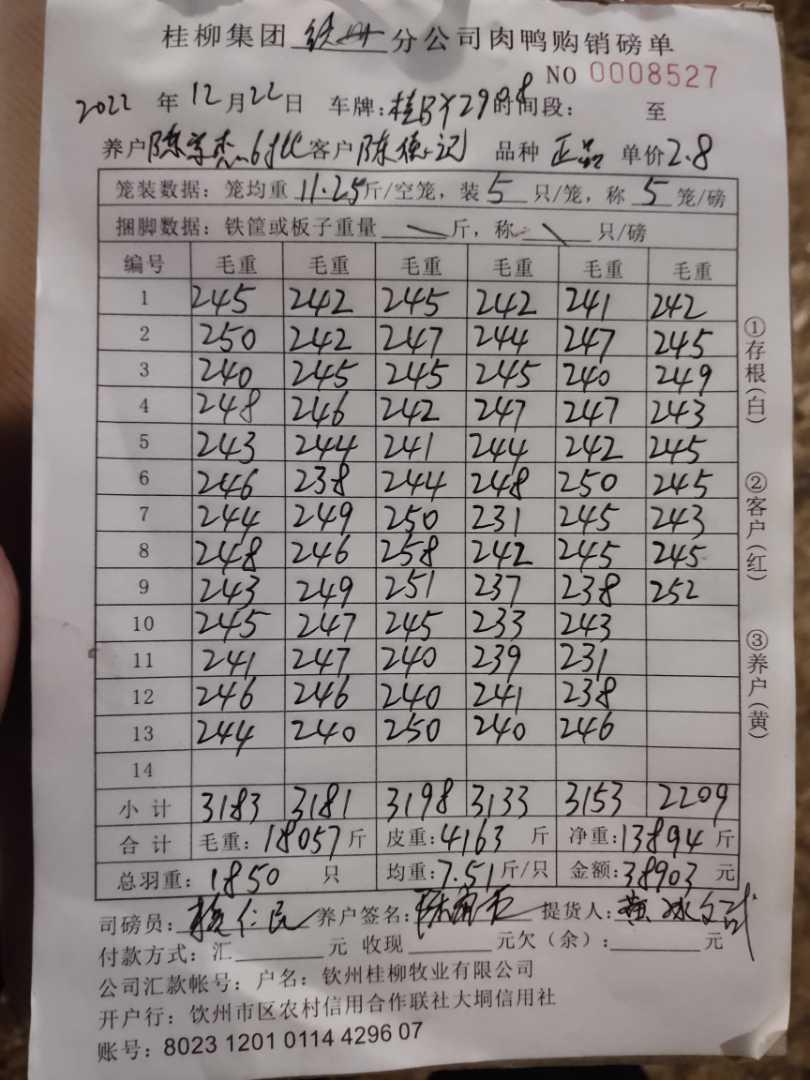 桂柳集团 钦州 分公司肉鸭购销磅单
NO 0008527
2022 年 12月22日 车牌:桂BY2908时间段: 至
养户 陈学杰 6批 客户 陈德记 品种 正品 单价2.8
笼装数据:笼均重 11.25斤/空笼,装 5 只/笼,称 5 笼/磅
捆脚数据:铁筐或板子重量 \ 斤,称 \ 只/磅
编号 毛重 毛重 毛重 毛重 毛重 毛重
1 245 242 245 242 241 242
2 250 242 247 244 247 245
3 240 245 245 245 240 249
4 248 246 242 247 247 243
5 243 244 241 244 242 245
6 246 238 244 248 250 245
7 244 249 250 231 245 243
8 248 246 258 242 245 245
9 243 249 251 237 238 252
10 245 247 245 233 243
11 241 247 240 239 231
12 246 246 240 241 238
13 244 240 250 240 246
14
小计 3183 3181 3198 3133 3153 2209
合计 毛重:18057斤 皮重:4163 斤 净重:13894 斤
总羽重:1850 只 均重:7.51斤/只 金额:38903 元
①存根(白) ②客户(红) ③养户(黄)
司磅员: 杨仁民 养户签名: 提货人:
付款方式:汇 元 收现 元欠(余): 元
公司汇款帐号:户名:钦州桂柳牧业有限公司
开户行:钦州市区农村信用合作联社大垌信用社
账号:8023 1201 0114 4296 07